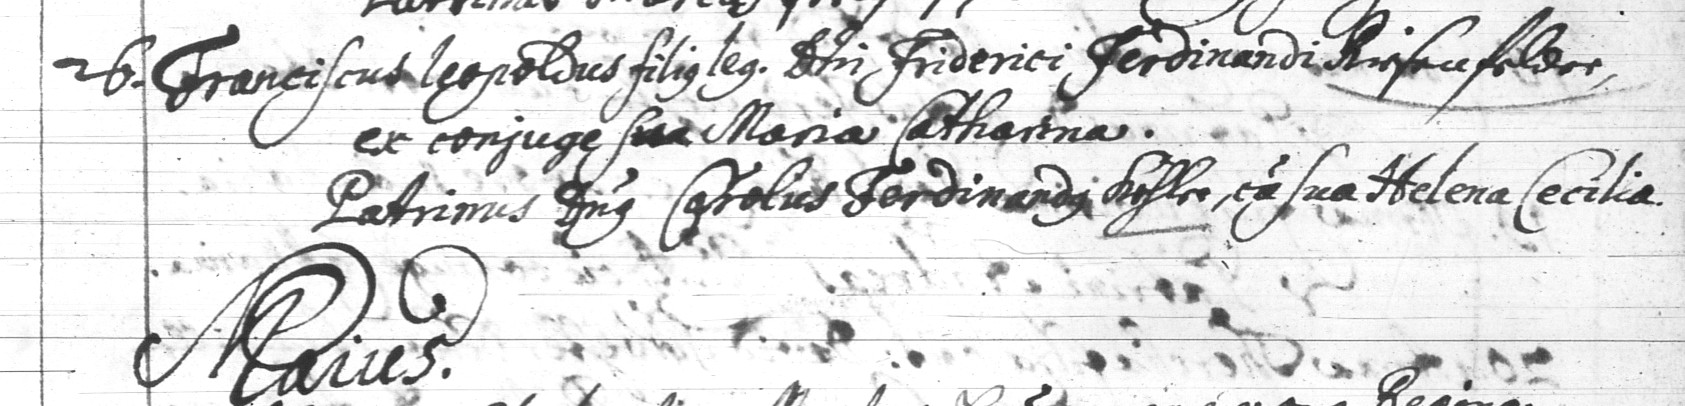 26. Franciscus Leopoldus filiq leg. Dni Friderici Ferdinandi Riesenfelder,
ex conjuge sua Maria Catharina.
Patrinus Dnq Carolus Ferdinandq Köhler, cã sua Helena Cecilia.
Maius.
Regina